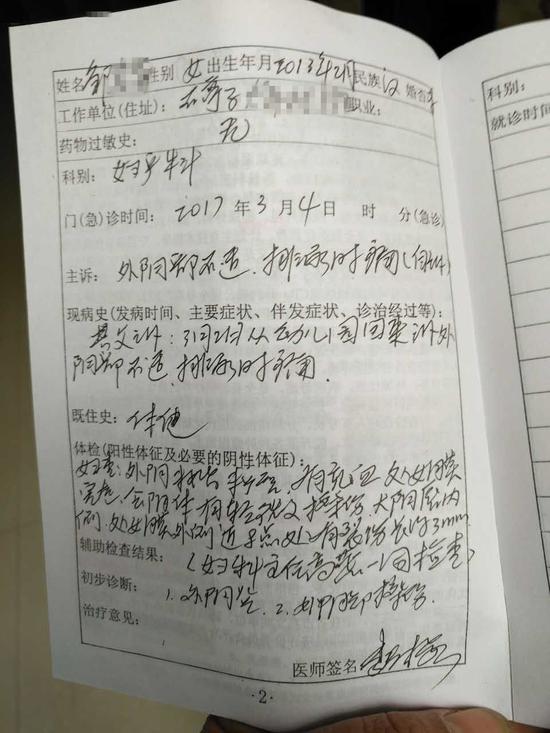 姓名 邹 性别 女 出生年月 2013年2月 民族 汉 婚否
工作单位(住址): 石 子 职业:
药物过敏史: 无
科别: 妇产科
门(急)诊时间: 2017 年 3 月 4 日 时 分(急诊)
主诉: 外阴部不适、排尿时疼痛(
现病史(发病时间、主要症状、伴发症状、诊治经过等):
其父诉:3月2日从幼儿园回来诉外
阴部不适,排尿时疼痛.
既住史: 体健
体检(阳性体征及必要的阴性体征):
妇查:外阴 有 处女膜
完整,会阴体有轻微 擦伤,大阴唇内
侧、处女膜外侧近 点处有裂伤长约3mm.
辅助检查结果: (妇科主任 一同检查)
初步诊断: 1.外阴炎 2. 外阴部擦伤.
治疗意见:
医师签名
·2·
科别:
就诊时间